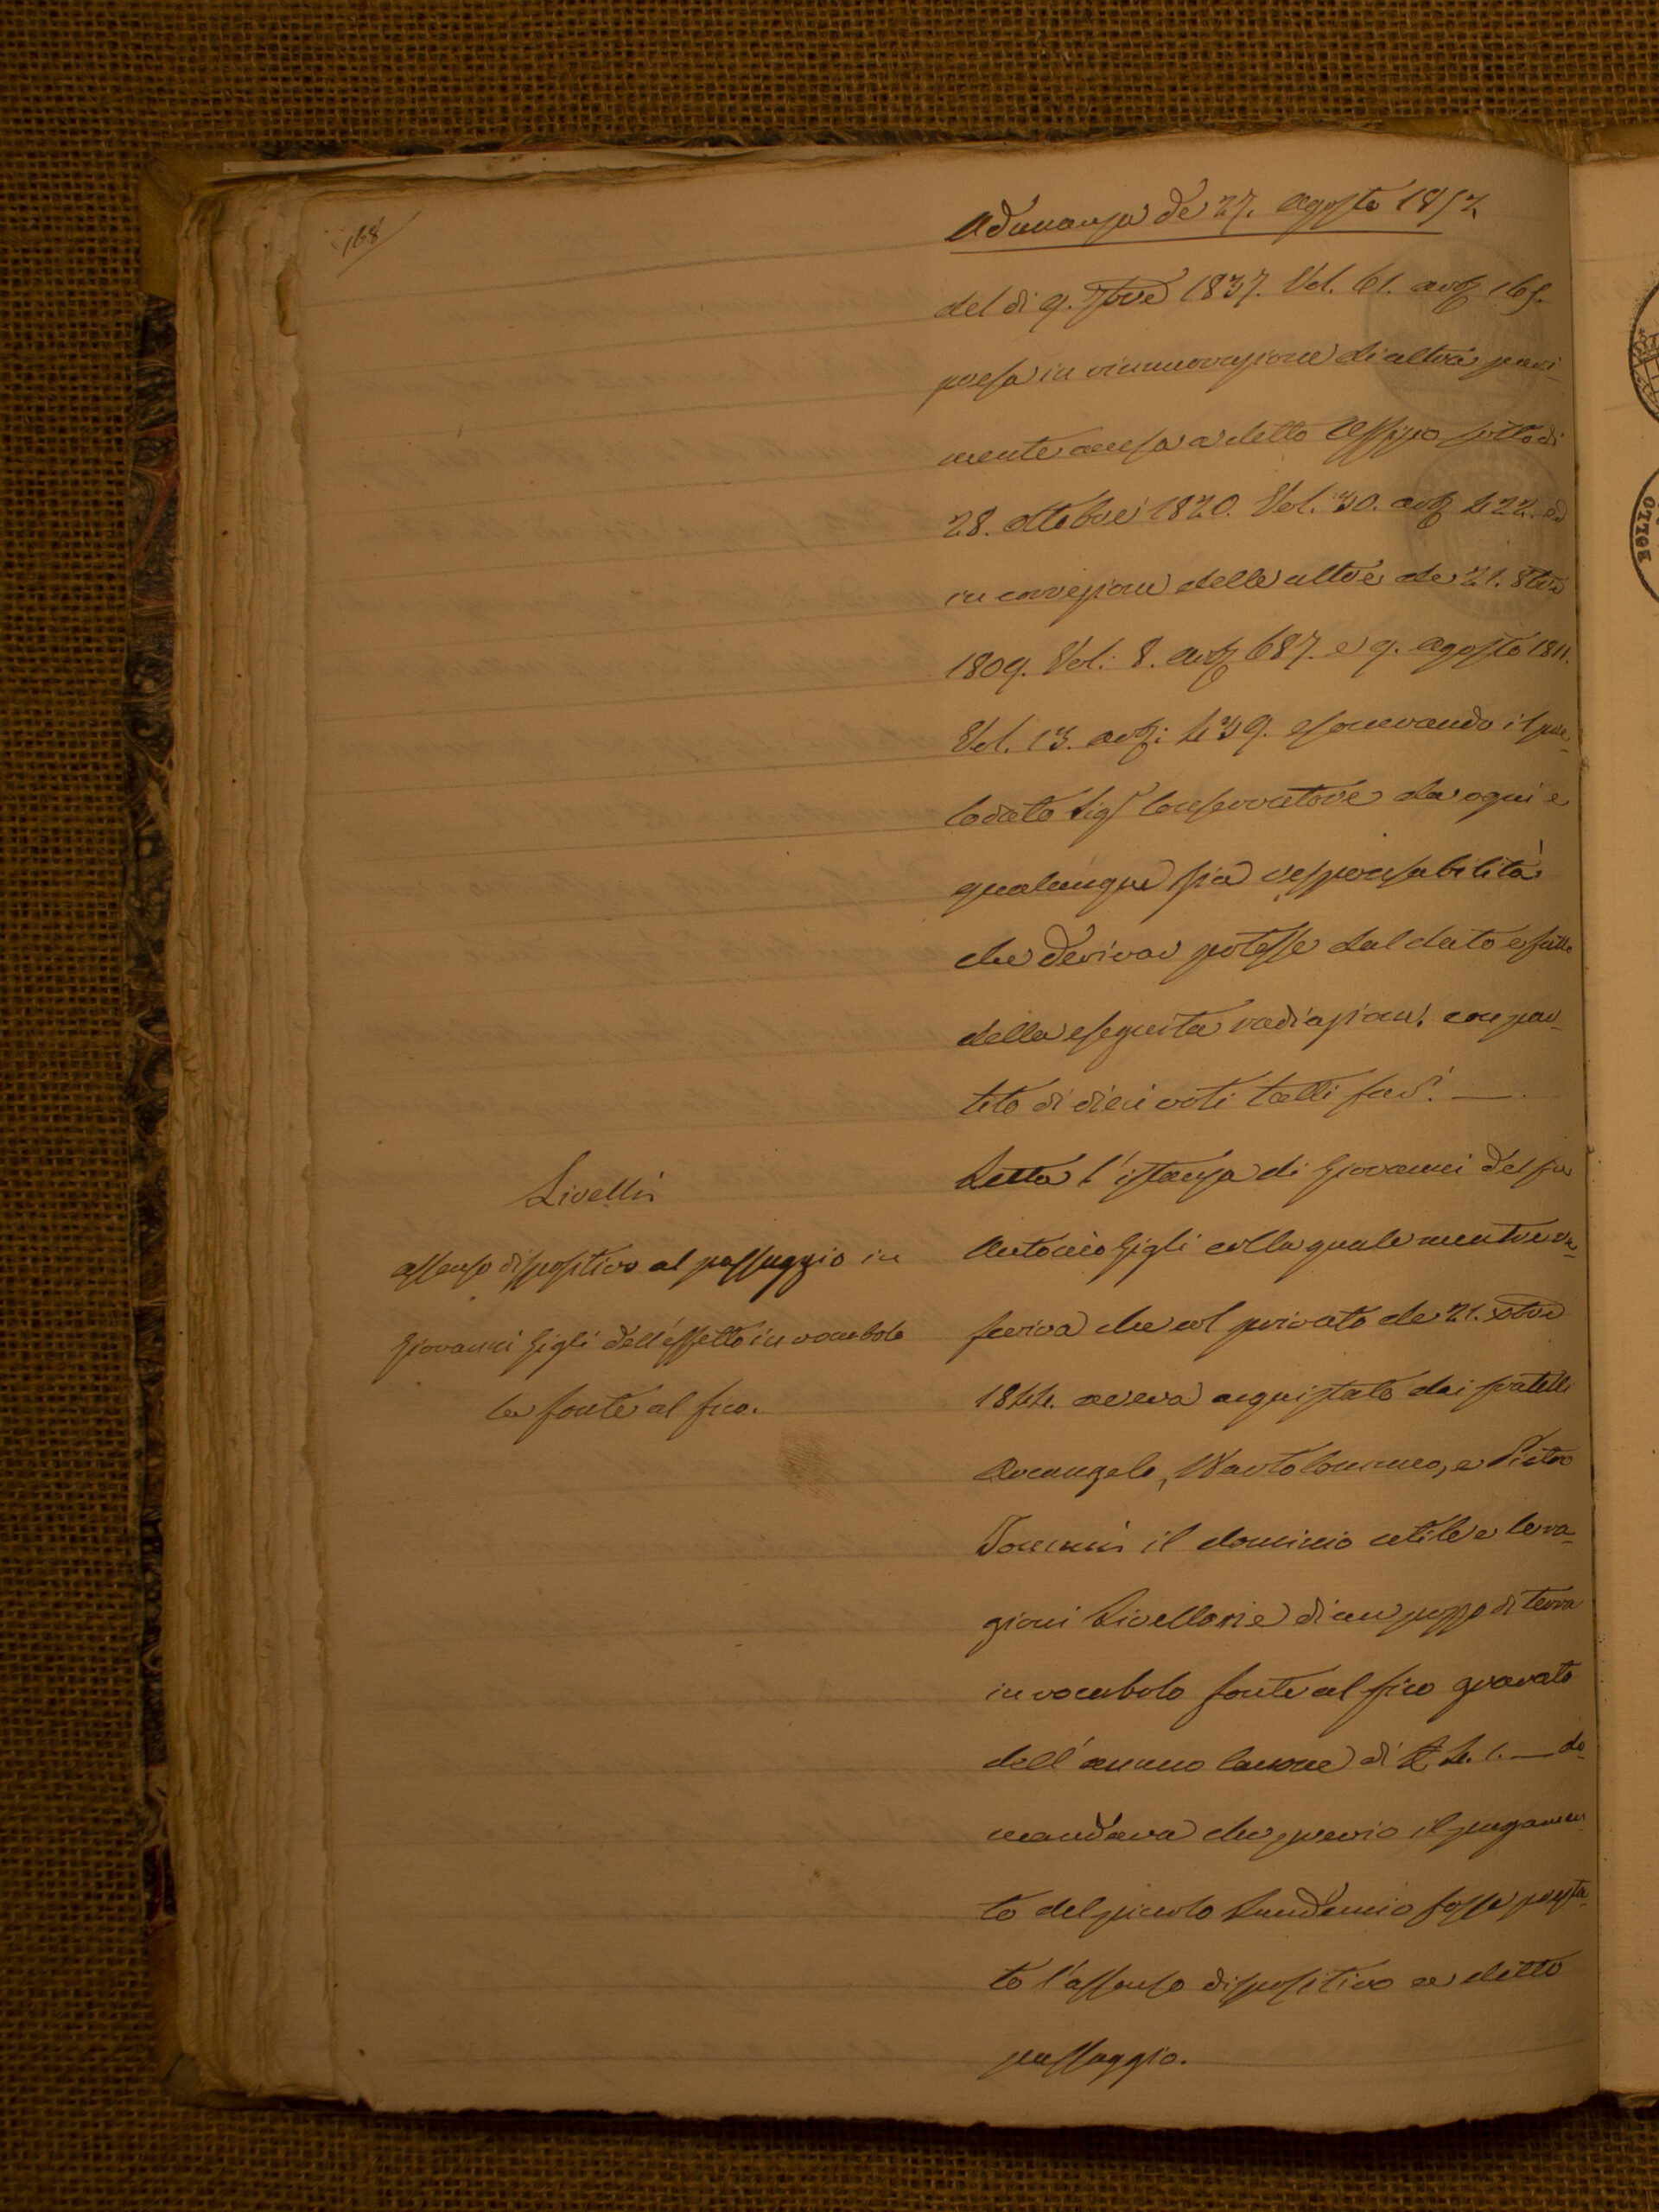 168
Adunanza de 27. Agosto 1852
del di 9. 7bre 1837. Vol. 61. artº 165.
presa in rinnuovazione di altra pari-
mente accesa a detto Uffizio sotto di
28. Ottobre 1820. Vol. 30. artº 422. ed
in correzione delle altre de 21. 8bre
1809. Vol. 8. artº 687. e 9. Agosto 1811.
Vol. 13. artº: 439. esonerando il pre-
lodato Sigr Conservatore da ogni e
qualunque sia responsabilità
che derivar potesse dal dato e fatto
della eseguita radiazione, con par-
tito di dieci voti tutti favi. —
Livelli
assenso dispositivo al passaggio in
Giovanni Gigli dell'effetto in vocabolo
la fonte al fico.
Letta l'istanza di Giovanni del fu
Antonio Gigli colla quale mentre re-
feriva che col privato de 21. xbre
1844. aveva acquistato dai fratelli
Arcangelo, Bartolommeo, e Pietro
Tommi il dominio utile e le ra-
gioni Livellarie di un pezzo di terra
in vocabolo fonte al fico gravato
dell'annuo Canone di £ 4. 1. — do-
mandava che previo il pagamen-
to del piccolo Laudemio fosse presta-
to l'assenso dispositivo a detto
passaggio.
BOLLO